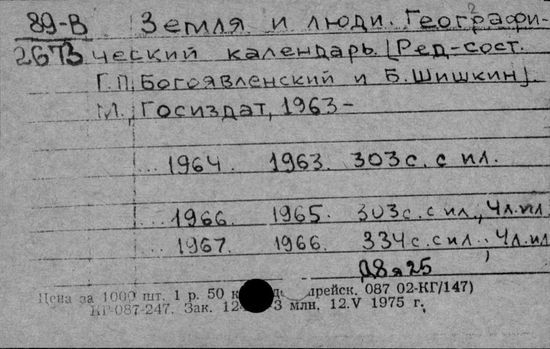 89-В Земля и люди. Географи-
2673 ческий календарь. [Ред-сост.
Г.П. Богоявленский и Б. Шишкин].
М., Госиздат, 1963-
...1964. 1963. 303 с. с ил.
...1966. 1965. 303 с. с ил., 4 л. ил.
...1967. 1966. 334 с. с ил.; 4 л. ил
Д8я25
Цена за 1000 шт. 1 р. 50 прейск. 087 02-КГ/147)
КГ-087-247. Зак. 3 млн. 12.V 1975 г.